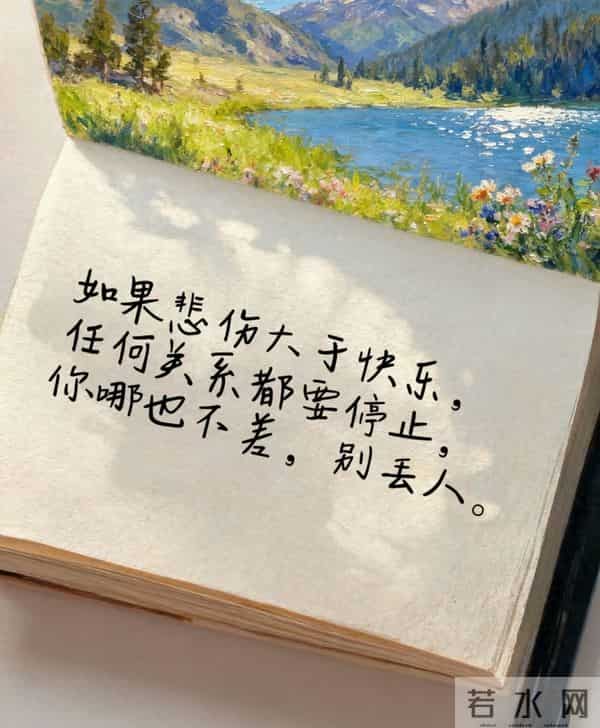 如果悲伤大于快乐，
任何关系都要停止，
你哪也不差，别丢人。
若水网